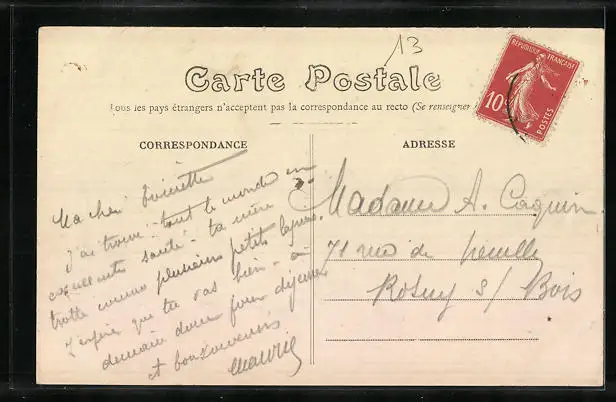 13
Carte Postale
Tous les pays étrangers n'acceptent pas la correspondance au recto (Se renseigner
REPUBLIQUE FRANÇAISE
10
POSTES
CORRESPONDANCE
ADRESSE
Ma chère
J'ai trouvé tout le monde en
excellente santé - ta mère
trotte comme plusieurs petits lapins.
J'espère que tu vas bien - à
demain donc pour déjeuner
et bons souvenirs
Maurice
Madame A. Coquin
71 rue de
Rosny s/ Bois